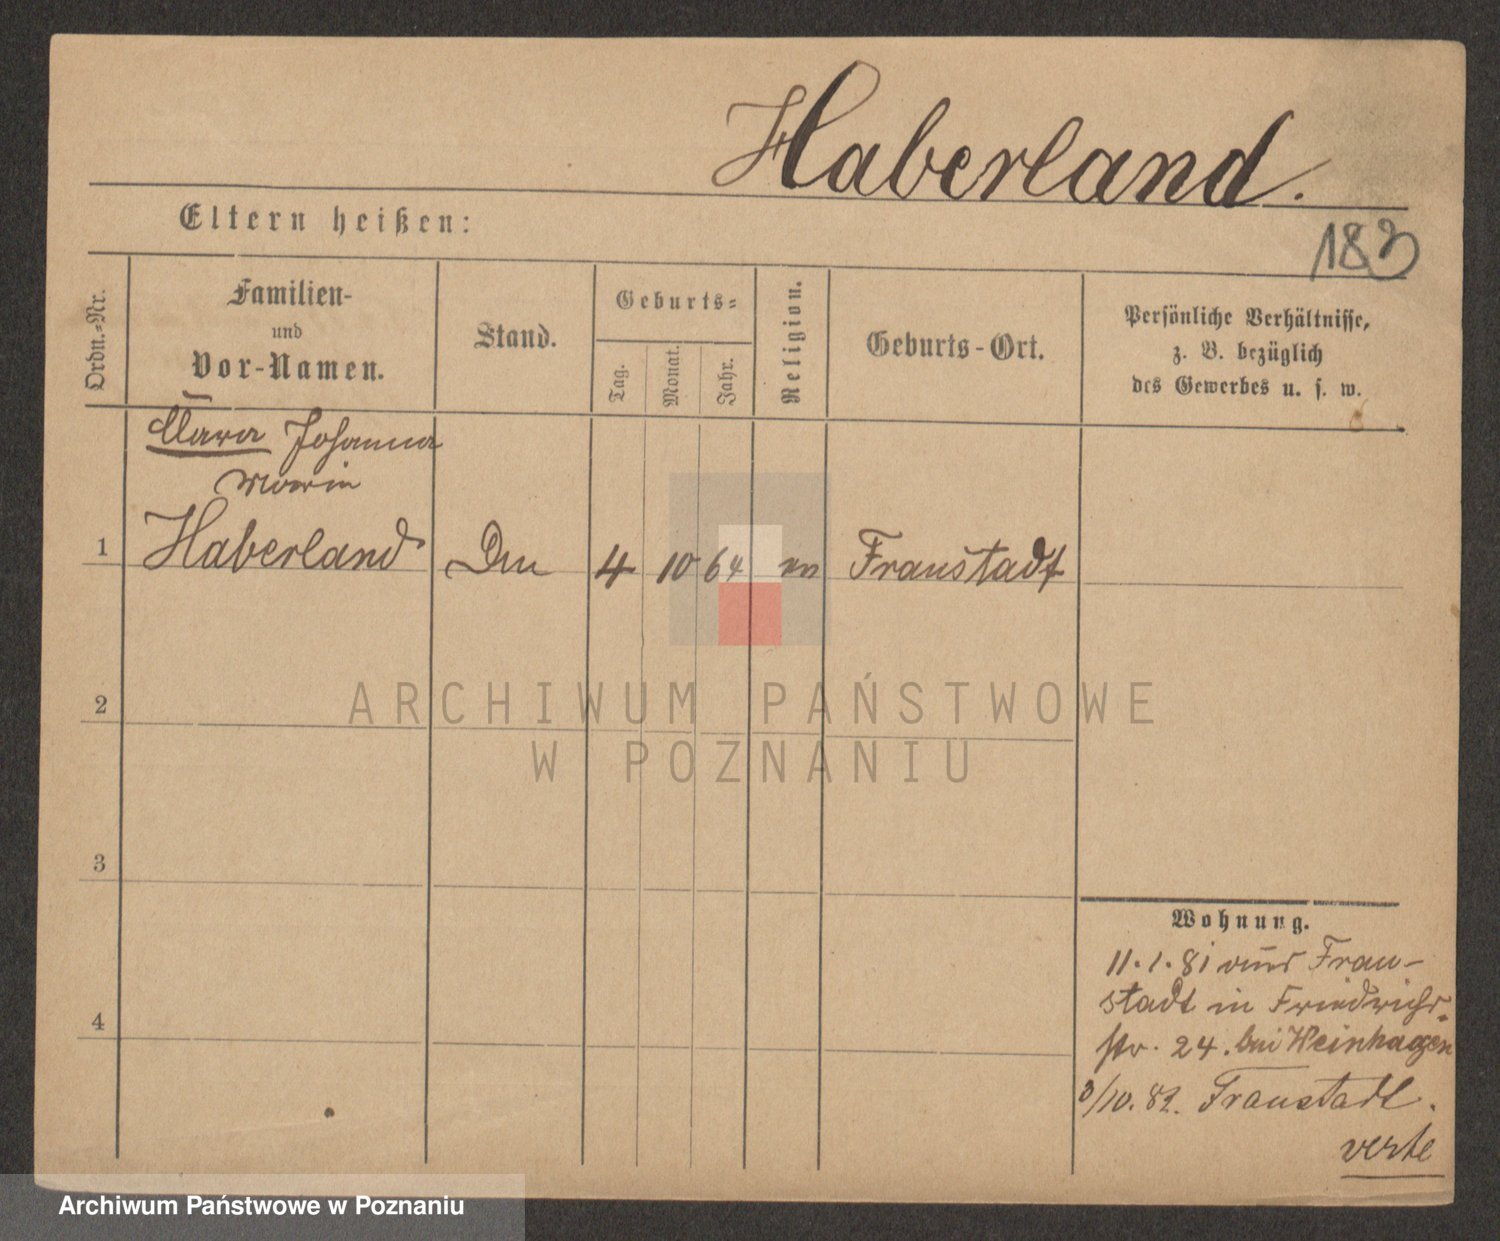 Haberland.
183
Eltern heißen:
Ordn.-Nr.
Familien-
und
Vor-Namen.
Stand.
Geburts-
Tag.
Monat.
Jahr.
Religion.
Geburts-Ort.
Persönliche Verhältnisse,
z. B. bezüglich
des Gewerbes u. s. w.
Clara Johanna
Marie
1 Haberland 4 10 64 Fraustadt
2
3
4
Wohnung.
11.1.81 aus Frau-
stadt in Friedrichs-
str. 24. bei Weinhagen
3/10.82. Fraustadt.
verte
ARCHIWUM PAŃSTWOWE
W POZNANIU
Archiwum Państwowe w Poznaniu